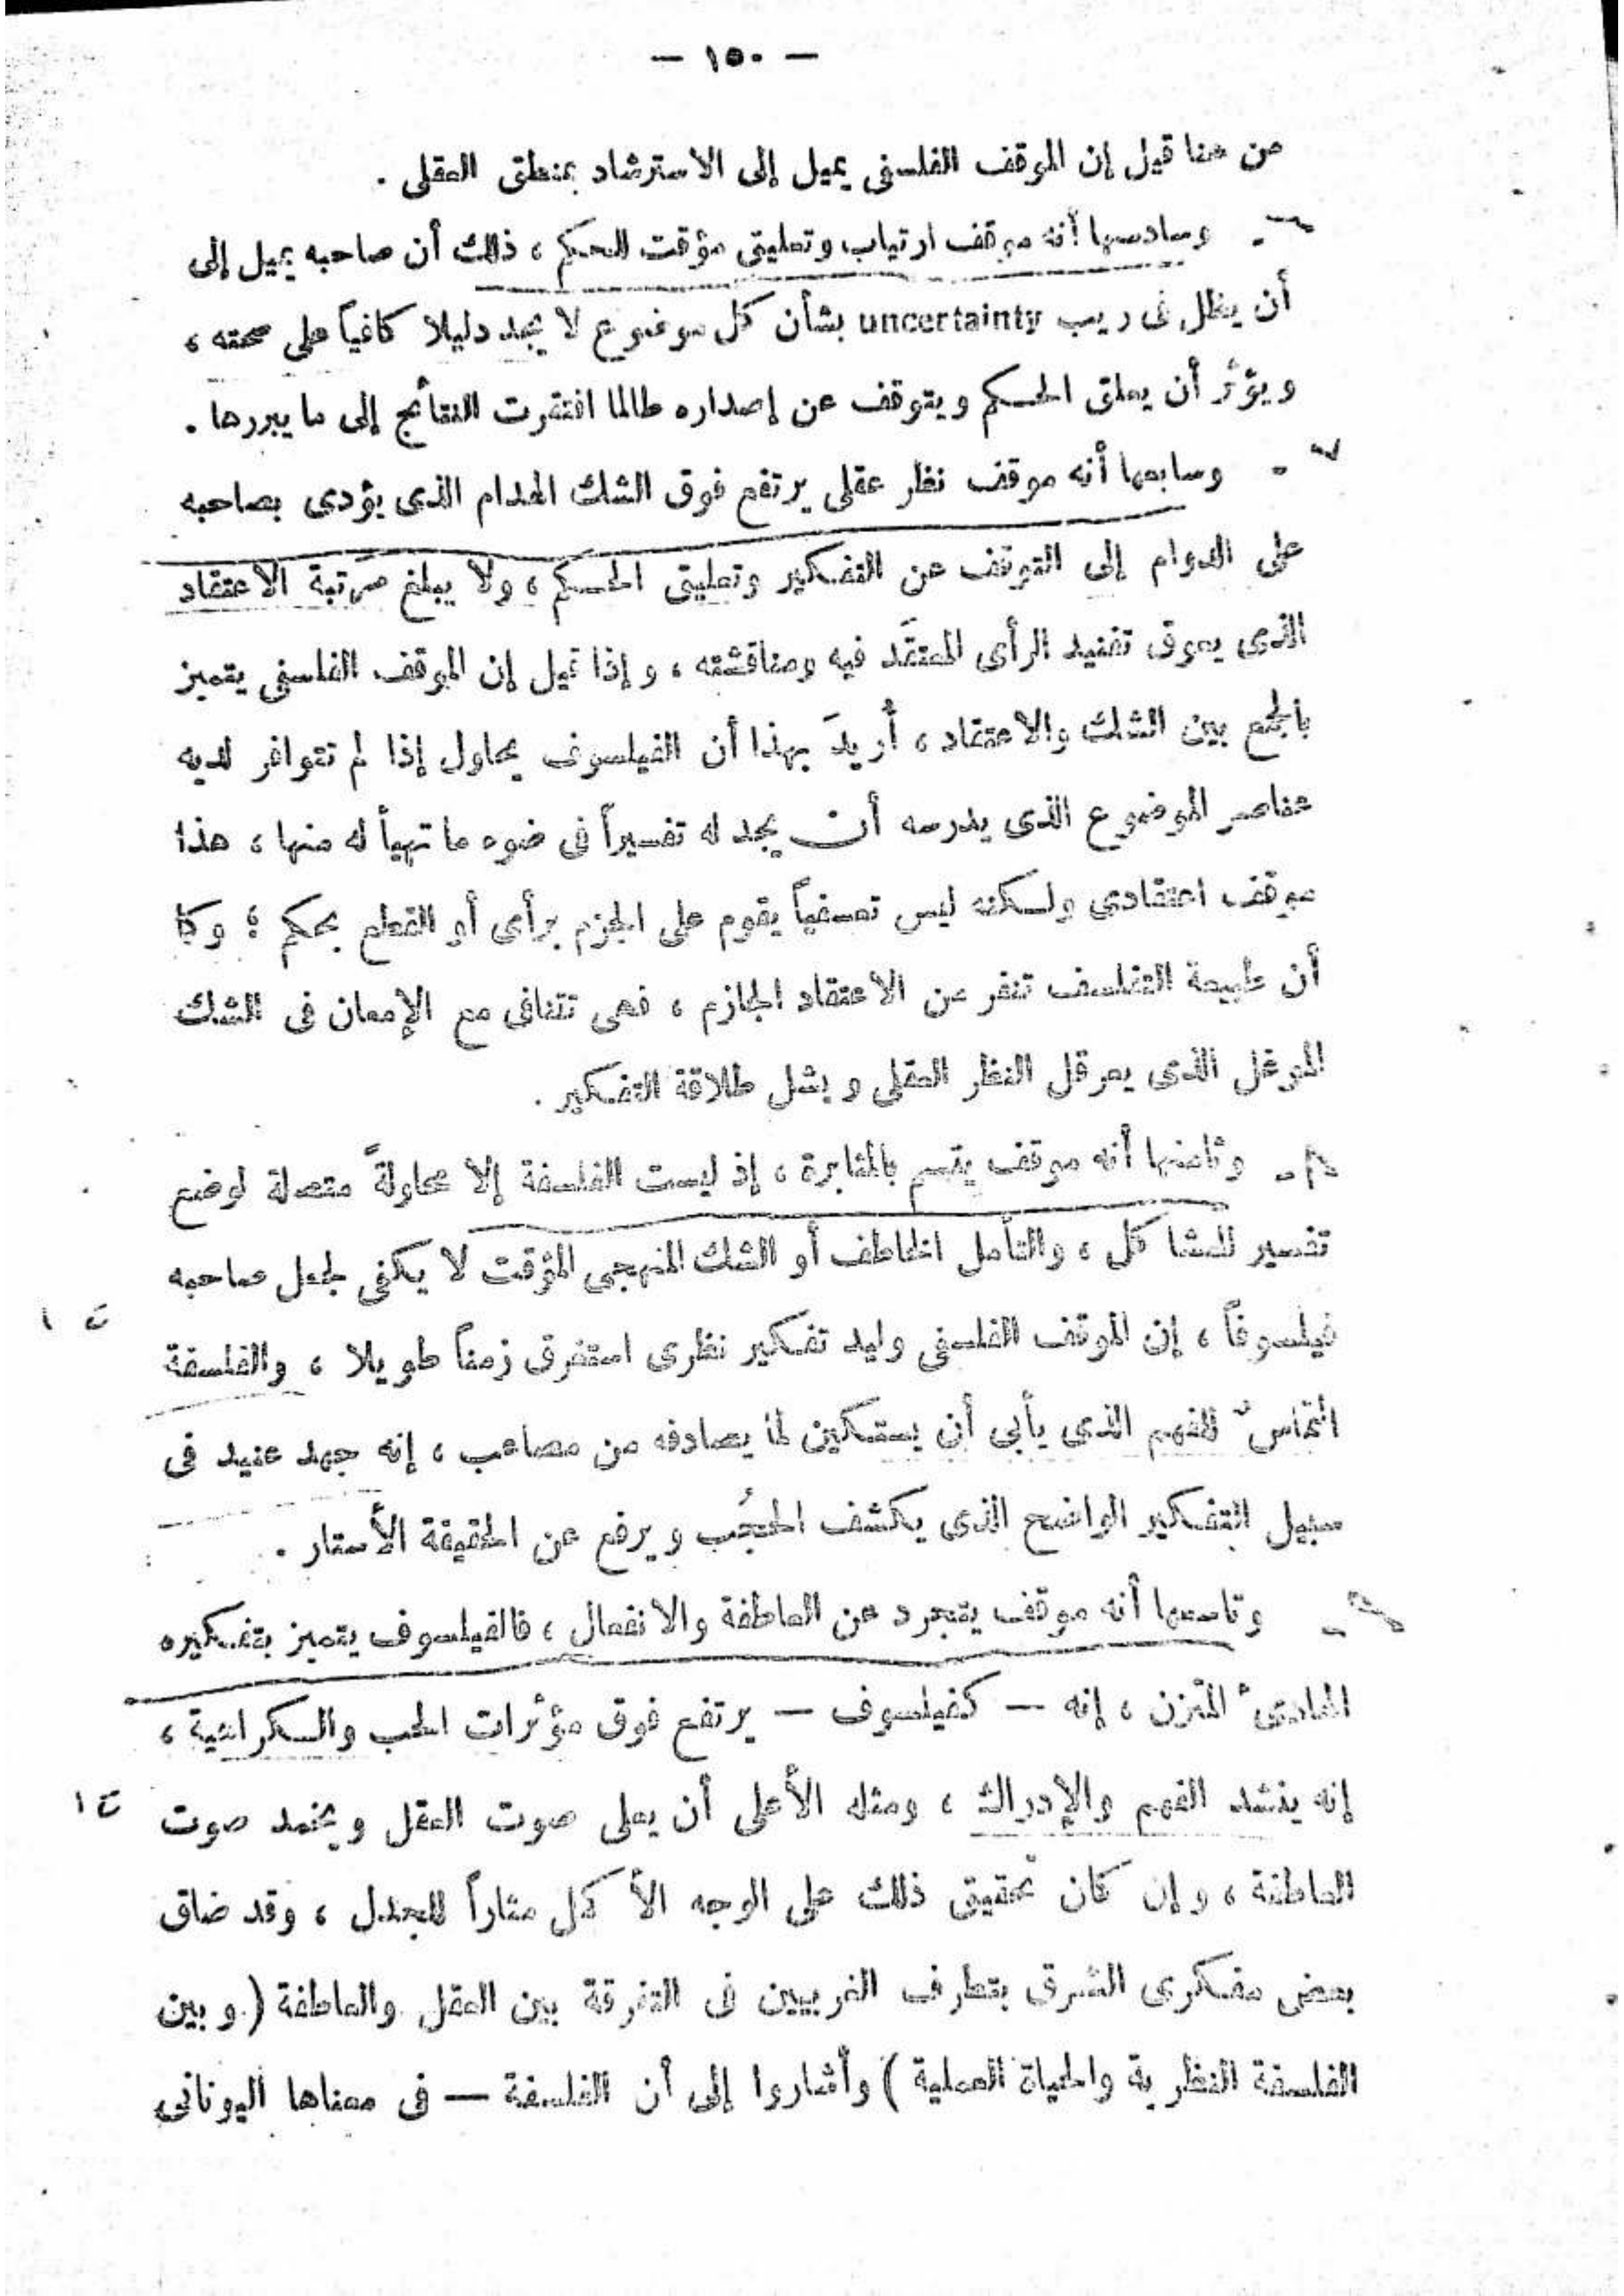 — ١٥٠ —
من هنا قيل إن الموقف الفلسفى يميل إلى الاسترشاد بمنطق العقل .
٦ - وسادسها أنه موقف ارتياب وتعليق مؤقت للحكم ، ذلك أن صاحبه يميل إلى
أن يظل فى ريب uncertainty بشأن كل موضوع لا يجد دليلا كافياً على صحته ،
ويؤثر أن يعلق الحكم ويتوقف عن إصداره طالما افتقرت النتائج إلى ما يبررها .
٧ - وسابعها أنه موقف نظر عقلى يرتفع فوق الشك الهدام الذى يؤدى بصاحبه
على الدوام إلى التوقف عن التفكير وتعليق الحكم ، ولا يبلغ مرتبة الاعتقاد
الذى يعوق تفنيد الرأى المعتقَد فيه ومناقشته ، وإذا قيل إن الموقف الفلسفى يتميز
بالجمع بين الشك والاعتقاد ، أُريدَ بهذا أن الفيلسوف يحاول إذا لم تتوافر لديه
عناصر الموضوع الذى يدرسه أن يجد له تفسيراً فى ضوء ما تهيأ له منها ، هذا
موقف اعتقادى ولكنه ليس تعسفياً يقوم على الجزم برأى أو القطع بحكم ؛ وكما
أن طبيعة التفلسف تنفر من الاعتقاد الجازم ، فهى تتنافى مع الإمعان فى الشك
الموغل الذى يعرقل النظر العقلى ويشل طلاقة التفكير .
٨ - وثامنها أنه موقف يتسم بالمثابرة ، إذ ليست الفلسفة إلا محاولةً متصلة لوضع
تفسير للمشاكل ، والتأمل الخاطف أو الشك المنهجى المؤقت لا يكفى لجعل صاحبه
فيلسوفاً ، إن الموقف الفلسفى وليد تفكير نظرى استغرق زمناً طويلا ، والفلسفة
ت ١
التماسٌ للفهم الذى يأبى أن يستكين لما يصادفه من مصاعب ، إنه جهد عنيد فى
سبيل التفكير الواضح الذى يكشف الحجُب ويرفع عن الحقيقة الأستار .
٩ - وتاسعها أنه موقف يتجرد عن العاطفة والانفعال ، فالفيلسوف يتميز بتفكيره
الهادئ المتزن ، إنه — كفيلسوف — يرتفع فوق مؤثرات الحب والكراهية ،
إنه ينشد الفهم والإدراك ، ومثله الأعلى أن يعلى صوت العقل ويخمد صوت
ت ١
العاطفة ، وإن كان تحقيق ذلك على الوجه الأكمل مثاراً للجدل ، وقد ضاق
بعض مفكرى الشرق بتطرف الغربيين فى التفرقة بين العقل والعاطفة ( وبين
الفلسفة النظرية والحياة العملية ) وأشاروا إلى أن الفلسفة — فى معناها اليونانى